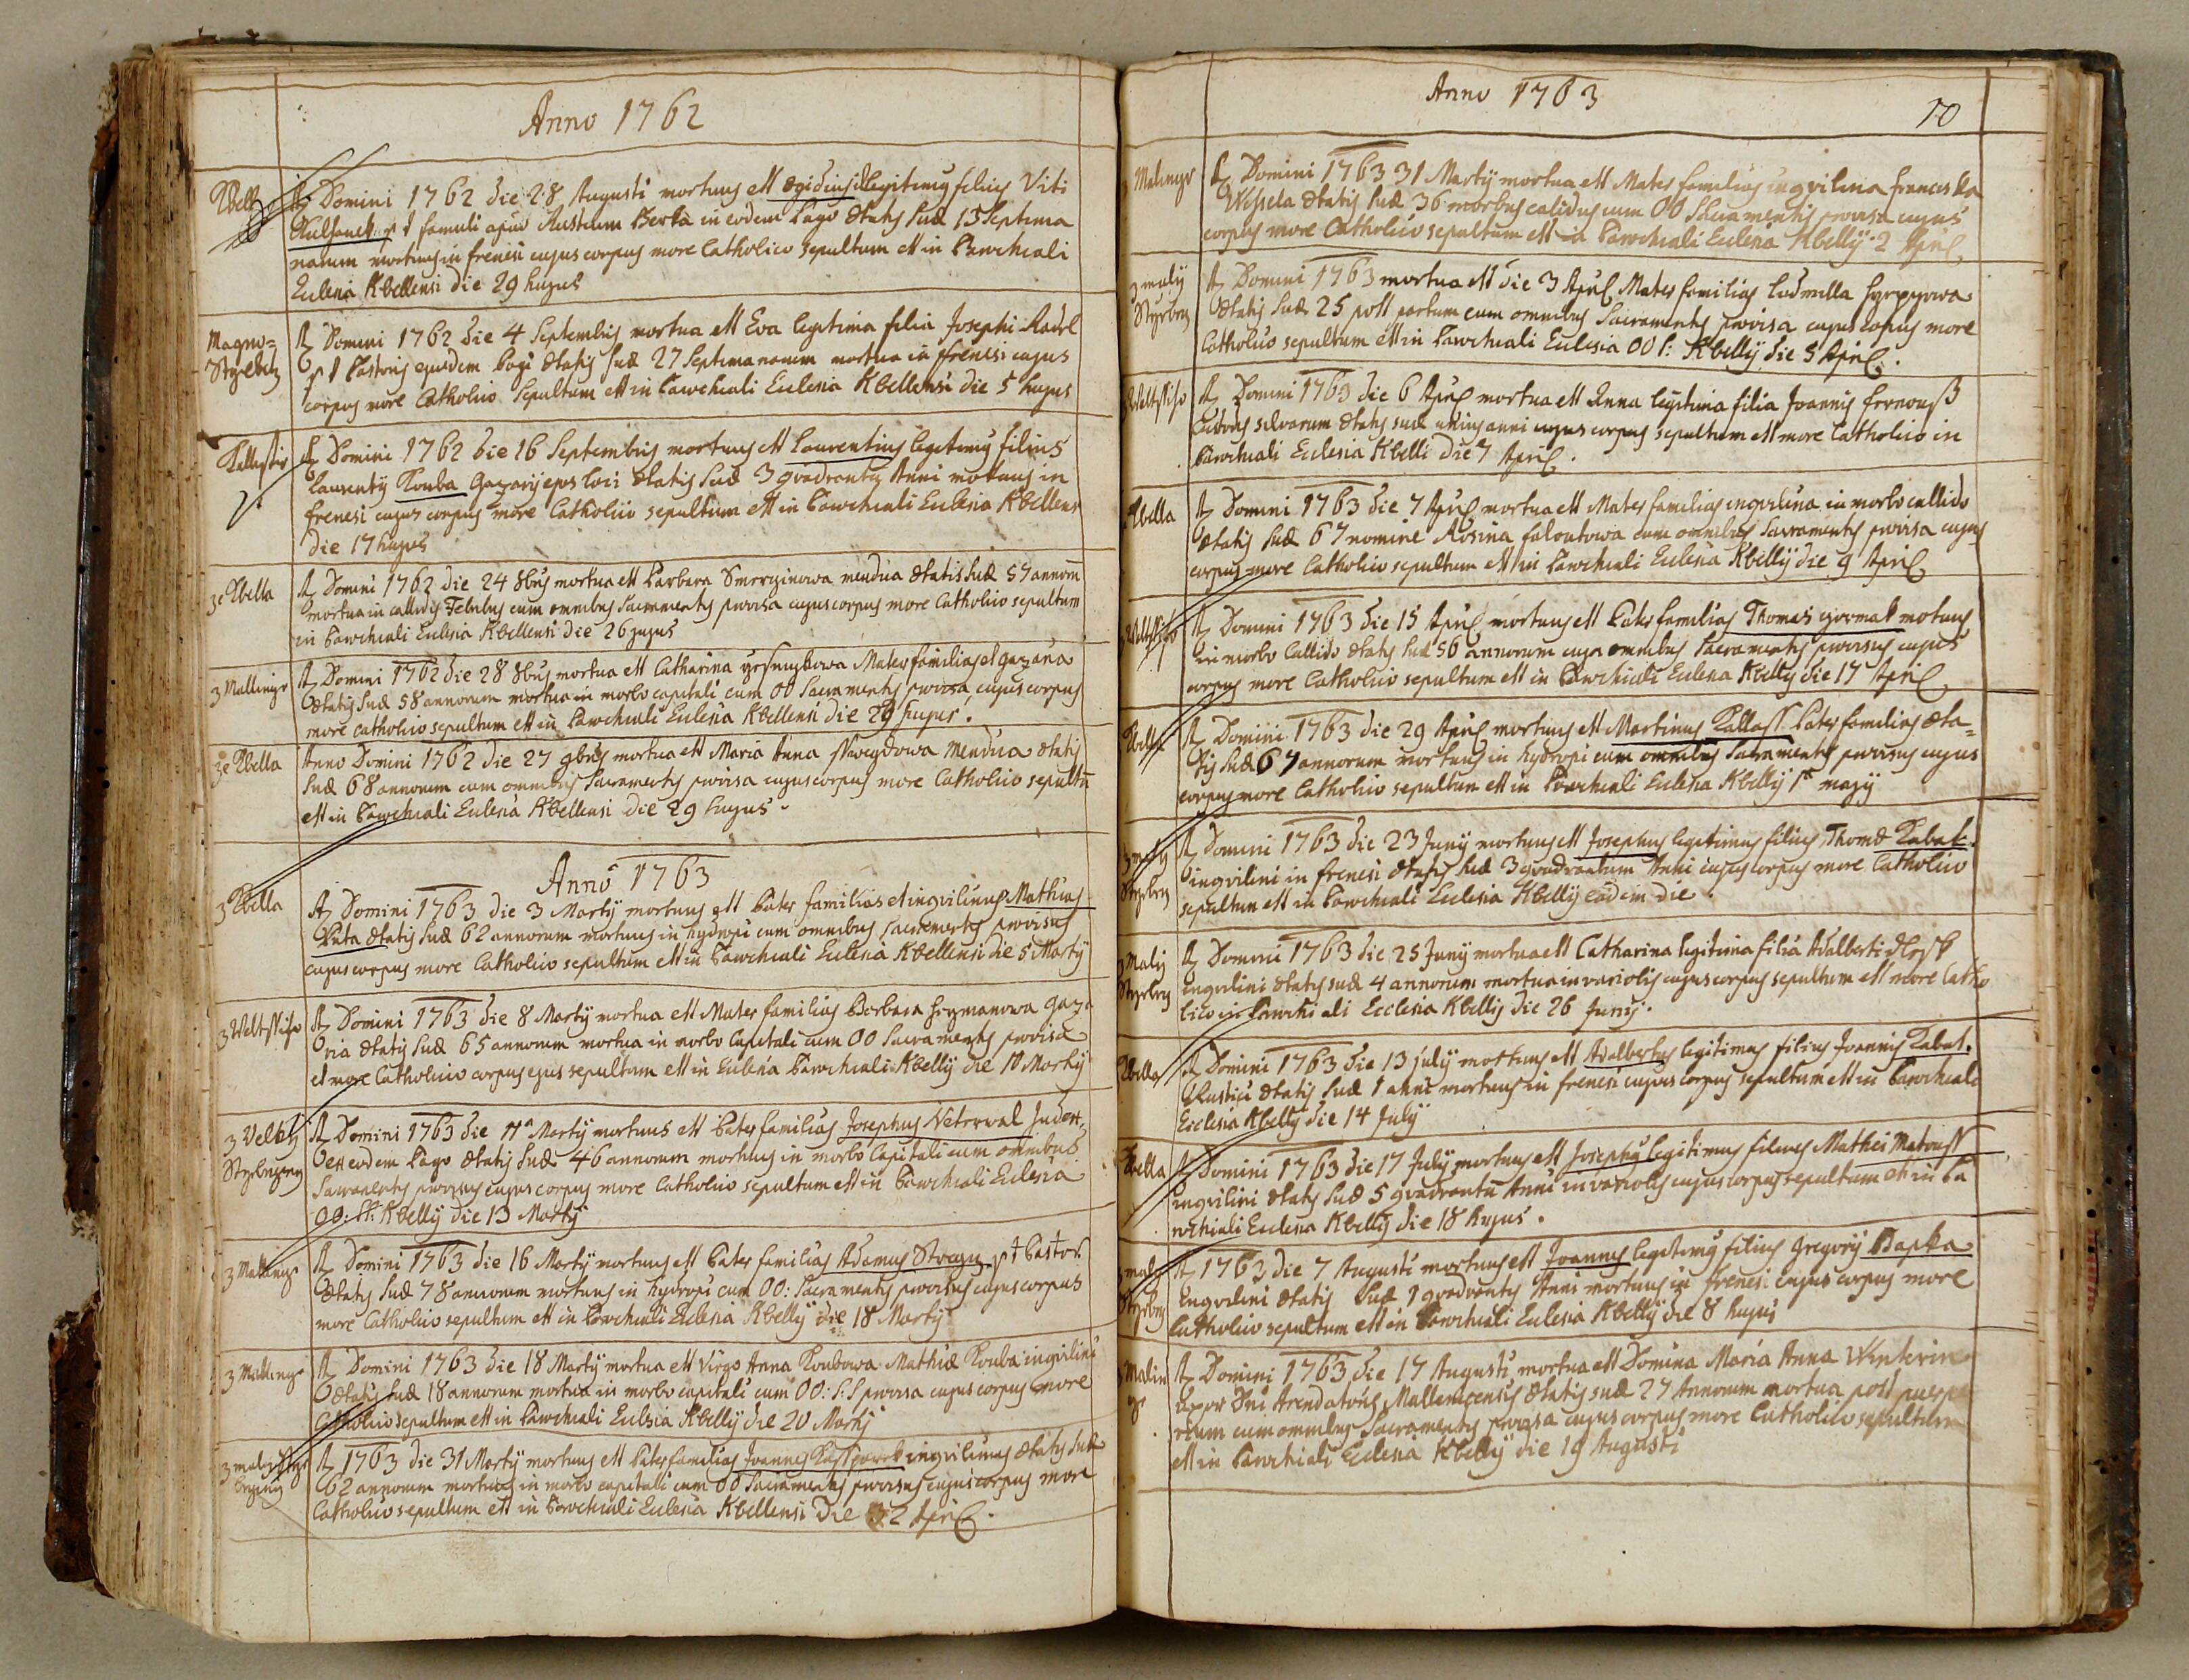 Anno 1762
Kbell
A Domini 1762 die 28 Augusti mortuus est Egidius illegitimus filius Viti
p t famuli apud Rusticum Berka in eodem Pago ætatis suæ 15 Septima
narum mortuus in frenesi cujus corpus more Catholico sepultum est in Parochiali
Eclesia Kbellensi die 29 hujus
Magno=
A Domini 1762 die 4 Septembris mortua est Eva legitima filia Josephi Kadrl
p t Pastoris ejusdem Pagi ætatis suæ 27 Septimanarum mortua in ffrenesi cujus
corpus more Catholico Sepultum est in Parochiali Eclesia Kbellensi die 5 hujus
A Domini 1762 die 16 Septembris mortuus est Laurentius legitimus filius
Laurentij Kouba Gazarij ejus loci ætatis suæ 3 quadrantis Anni mortuus in
frenesi cujus corpus more Catholico sepultum est in Parochiali Eclesia Kbellens
die 17 hujus
ze Kbella
A Domini 1762 die 24 8bris mortua est Barbara Smrzinowa mendica ætatis suæ 57 annorum
mortua in callidis Febribus cum omnibus Sacramentis provisa cujus corpus more Catholico sepultum
in Parochiali Eclesia Kbellensi die 26 hujus
z Mallinzr
A Domini 1762 die 28 8bris mortua est Catharina Mater familias et gazaria
ætatis suæ 58 annorum mortua in morbo capitali cum OO Sacramentis provisa cujus corpus
more catholico sepultum est in Parochiali Eclesia Kbellensi die 29 hujus.
ze Kbella
Anno Domini 1762 die 27 9bris mortua est Maria Anna Mendica ætatis
suæ 68 annorum cum omnibus Sacramentis provisa cujus corpus more Catholico sepultu
est in Parochiali Eclesia Kbellensi die 29 hujus
Anno 1763
z Kbella
A Domini 1763 die 3 Martij mortuus est Pater familias et inquilinus Mathias
Kuta ætatis suæ 62 annorum mortuus in hydropi cum omnibus sacramentis provisus
cujus corpus more Catholico sepultum est in Parochiali Eclesia Kbellensi die 5 Martij
z Weltssiho
A Domini 1763 die 8 Martij mortua est Mater familias Barbara Hejzmanowa Gaza
ria ætatis suæ 65 annorum mortua in morbo Capitali cum OO Sacramentis provisa
et more Catholico corpus ejus sepultum est in Eclesia Parochiali Kbellij die 10 Martij
z Velky
A Domini 1763 die 11a Martij mortuus est Pater familias Josephus Netrwal
eodem Pago ætatis suæ 46 annorum mortuus in morbo Capitali cum omnibus
Sacramentis provisus cujus corpus more Catholico sepultum est in Parochiali Eclesia
OO: SS: Kbellij die 13 Martij
z Mallinzr
A Domini 1763 die 16 Martij mortuus est Pater familias Adamus p t Pastor
ætatis suæ 78 annorum mortuus in hydropi cum OO: Sacramentis provisus cujus corpus
more Catholico sepultum est in Parochiali Eclesia Kbellij die 18 Martij
z Mallinzr
A Domini 1763 die 18 Martij mortua est Virgo Anna Koubowa Mathiæ Kouba inquilini
ætatis suæ 18 annorum mortua in morbo capitali cum OO: S:S provisa cujus corpus more
Catholico sepultum est in Parochiali Eclesia Kbellij die 20 Martij
A 1763 die 31 Martij mortuus est Pater familias Joannes Kasspárek inquilinus ætatis suæ
62 annorum mortuus in morbo capitali cum OO Sacramentis provisus cujus corpus more
Catholico sepultum est in Parochiali Eclesia Kbellensi die 2 April.
Anno 1763
10
z Malinzr
A Domini 1763 31 Martij mortua est Mater familias inquilina Franciska
Wessela ætatis suæ 36 morbus calidus cum OO Sacramentis provisa cujus
corpus more Catholico sepultum est in Parochiali Eclesia Kbellij 2 April
z maly
A Domini 1763 mortua est die 3 April Mater familias Ludmilla
ætatis suæ 25 post partum cum omnibus Sacramentis provisa cujus corpus more
Catholico sepultum est in Parochiali Eclesia OO S: Kbellij die 5 April.
Weltssiho
A Domini 1763 die 6 April mortua est Anna legitima filia Joannis
silvarum ætatis suæ unius anni cujus corpus sepultum est more Catholico in
Parochiali Eclesia Kbelli die 7 April.
Kbella
A Domini 1763 die 7 April mortua est Mater familias inquilina in morbo callido
ætatis suæ 67 nomine Rosina Faloutowa cum omnibus Sacramentis provisa cujus
corpus more Catholico sepultum est in Parochiali Eclesia Kbellij die 9 April
Weltssiho
A Domini 1763 die 15 April mortuus est Pater familias Thomas mortuus
in morbo Callido ætatis suæ 56 annorum cum omnibus Sacramentis provisus cujus
corpus more Catholico sepultum est in Parochiali Eclesia Kbellij die 17 April
Kbella
A Domini 1763 die 29 April mortuus est Martinus Kallass Pater familias æta=
tis suæ 67 annorum mortuus in hydropi cum omnibus Sacramentis provisus cujus
corpus more Catholico sepultum est in Parochiali Eclesia Kbellij 1a majij
z maly
A Domini 1763 die 23 Junij mortuus est Josephus legitimus filius Thomæ Kabat
inquilini in frenesi ætatis suæ 3 quadrantum Anni cujus corpus more Catholico
sepultum est in Parochiali Eclesia Kbellij eadem die.
z Maly
A Domini 1763 die 25 Junij mortua est Catharina legitima filia Adalberti
inquilini ætatis suæ 4 annorum mortua in variolis cujus corpus sepultum est more Catho
lico in Parochiali Ecclesia Kbellij die 26 Junij.
Kbella
A Domini 1763 die 13 july mortuus est Adalbertus legitimus filius Joannis Kabat.
Rustici ætatis suæ 1 anni mortuus in frenesi cujus corpus sepultum est in Parochiali
Ecclesia Kbellij die 14 July
Kbella
A Domini 1763 die 17 July mortuus est Josephus legitimus filius Mathei Matouss
inquilini ætatis suæ 5 quadrantu Anni in variolis cujus corpus sepultum est in Pa
rochiali Eclesia Kbellij die 18 hujus.
z maly
A 1763 die 7 Augusti mortuus est Joannes legitimus filius Gregorij Papka
inquilini ætatis suæ 1 quadrantis Anni mortuus in frenesi cujus corpus more
Catholico sepultum est in Parochiali Eclesia Kbellij die 8 hujus
z Malin
zr
A Domini 1763 die 17 Augusti mortua est Domina Maria Anna
uxor Dni Arendatoris Mallenicensis ætatis suæ 27 Annorum mortua post puerpe
rium cum omnibus Sacramentis provisa cujus corpus more Catholico sepultum
est in Parochiali Eclesia Kbellij die 19 Augusti